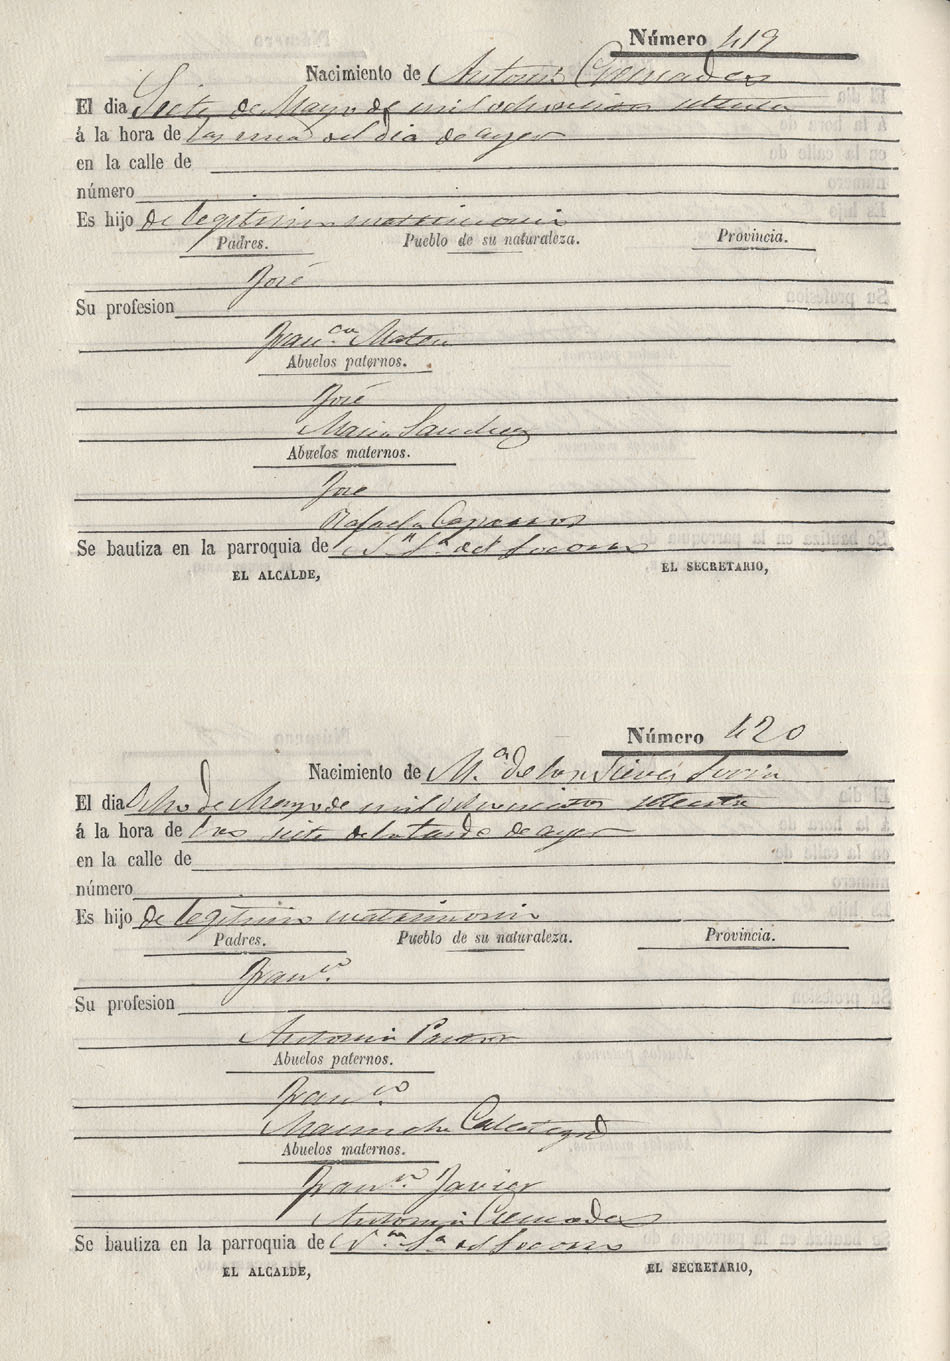 Número 419
Nacimiento de Antonio Cremades
El dia Siete de Mayo de mil ochocientos setenta
á la hora de las una del dia de ayer
en la calle de
número
Es hijo de legitimo matrimonio
Padres. Pueblo de su naturaleza. Provincia.
José
Su profesion
Fran.ca Mateu
Abuelos paternos.
José
Maria Sanchez
Abuelos maternos.
José
Rafaela
Se bautiza en la parroquia de N.a S.a del Socorro
EL ALCALDE, EL SECRETARIO,
Número 420
Nacimiento de M.a de las Nieves Soria
El dia Ocho de Mayo de mil ochocientos setenta
á la hora de las siete de la tarde de ayer
en la calle de
número
Es hijo de legitimo matrimonio
Padres. Pueblo de su naturaleza. Provincia.
Fran.co
Su profesion
Antonia Pastor
Abuelos paternos.
Fran.co
Manuela
Abuelos maternos.
Fran.co Javier
Antonia Cremades
Se bautiza en la parroquia de N.a S.a del Socorro
EL ALCALDE, EL SECRETARIO,